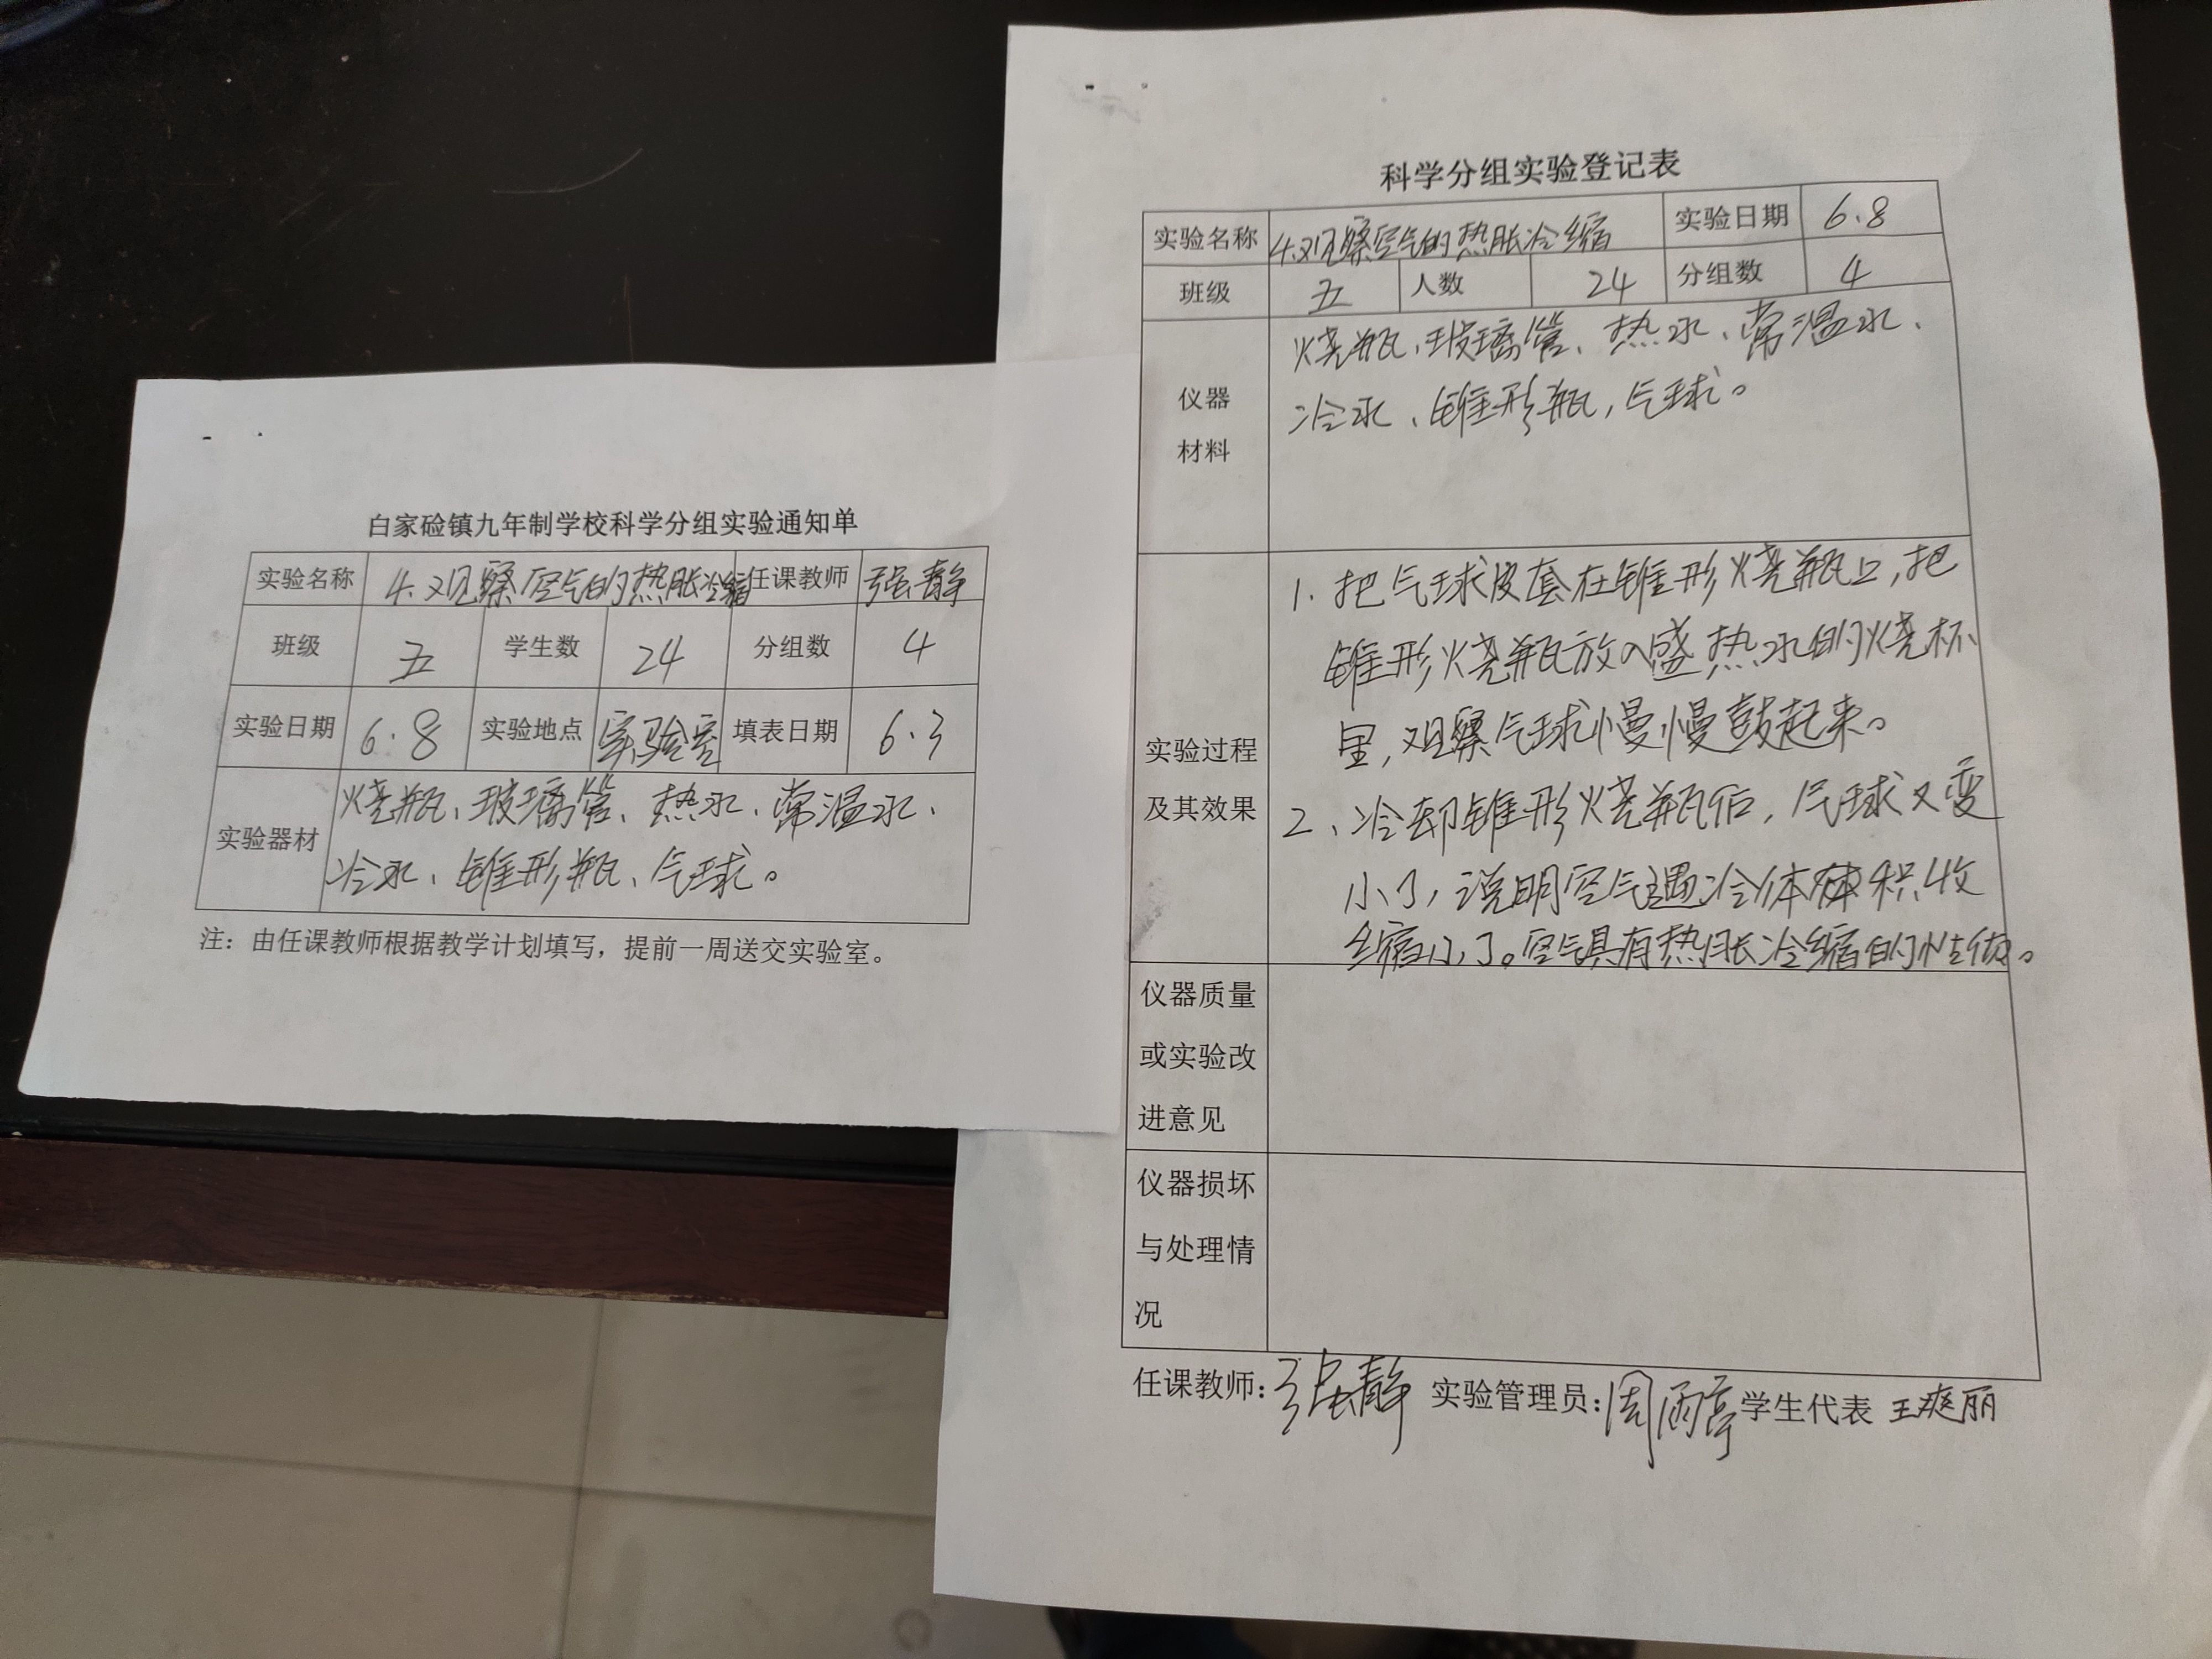 白家硷镇九年制学校科学分组实验通知单
实验名称 4.观察空气的热胀冷缩 任课教师 强静
班级 五 学生数 24 分组数 4
实验日期 6.8 实验地点 实验室 填表日期 6.3
实验器材 烧瓶、玻璃管、热水、常温水、
冷水、锥形瓶、气球。
注：由任课教师根据教学计划填写，提前一周送交实验室。
科学分组实验登记表
实验名称 4.观察空气的热胀冷缩 实验日期 6.8
班级 五 人数 24 分组数 4
仪器
材料
烧瓶、玻璃管、热水、常温水、
冷水、锥形瓶，气球。
实验过程
及其效果
1.把气球皮套在锥形烧瓶口，把
锥形烧瓶放入盛热水的烧杯
里，观察气球慢慢鼓起来。
2、冷却锥形烧瓶后，气球又变
小了，说明空气遇冷体积收
缩小了。空气具有热胀冷缩的性
仪器质量
或实验改
进意见
仪器损坏
与处理情
况
任课教师：强静 实验管理员：周雨亭 学生代表 王爽丽